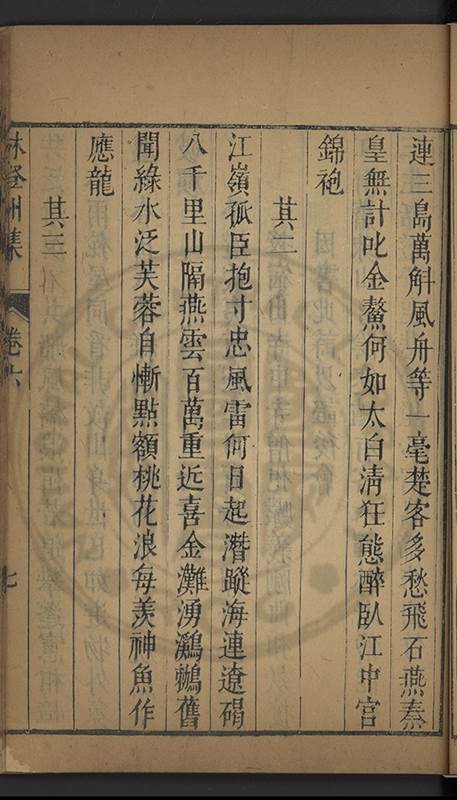 連三島萬斛風舟等一毫楚客多愁飛石燕秦
皇無計叱金鰲何如太白清狂態醉臥江中宮
錦袍
其二
江嶺孤臣抱寸忠風雷何日起潛蹤海連遼碣
八千里山隔燕雲百萬重近喜金灘湧鸂鶒舊
聞綠水泛芙蓉自慚點額桃花浪每羨神魚作
應龍
其三
林登州集
卷六
七